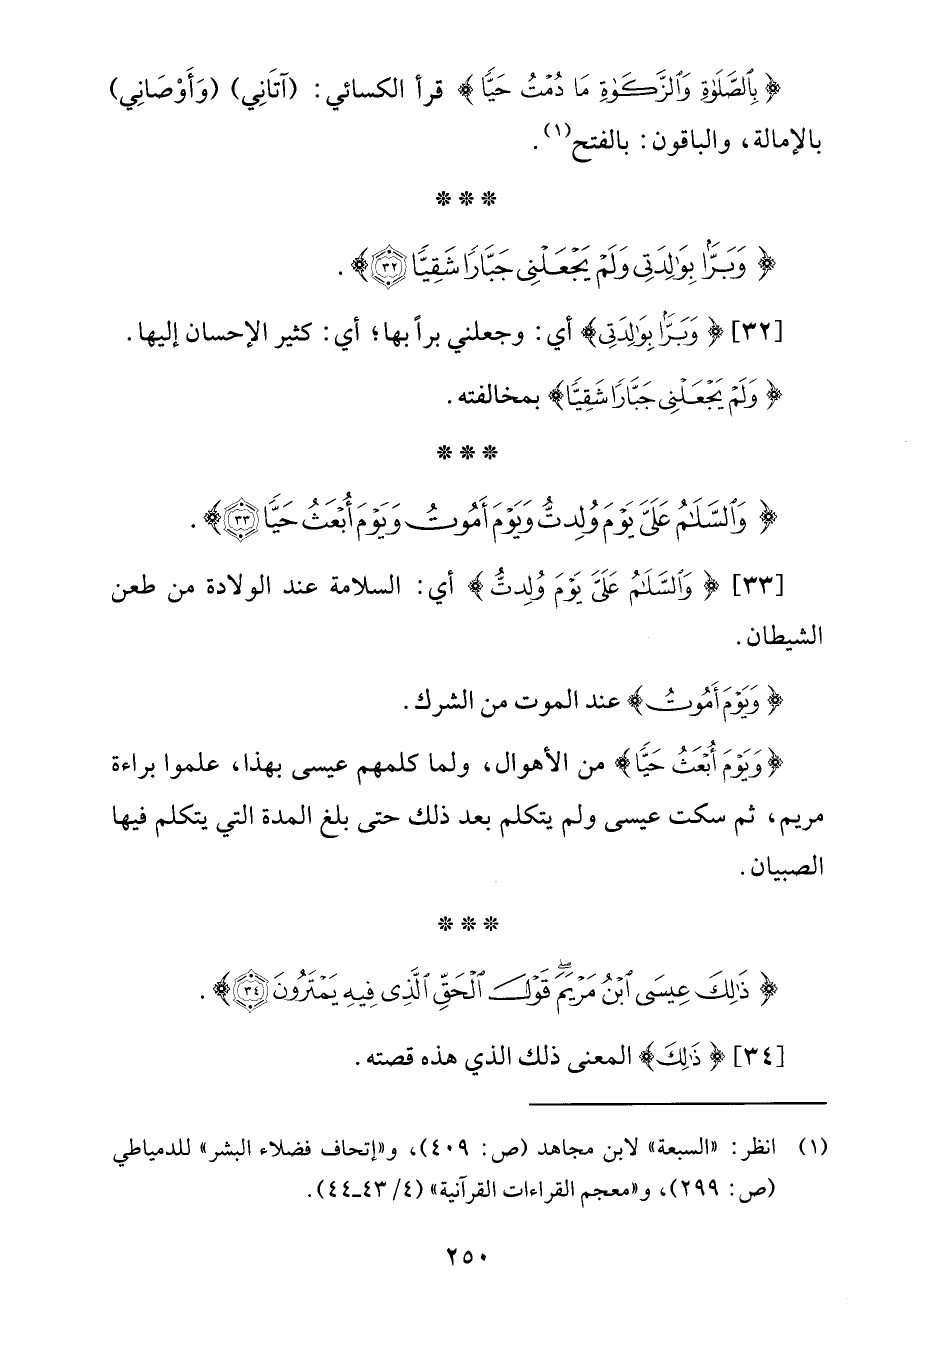 ﴿ بِٱلصَّلَوٰةِ وَٱلزَّكَوٰةِ مَا دُمْتُ حَيًّا ﴾ قرأ الكسائي: (آتَانِي) (وَأَوْصَانِي)
بالإمالة، والباقون: بالفتح(١).
* * *
﴿ وَبَرًّۢا بِوَٰلِدَتِى وَلَمْ يَجْعَلْنِى جَبَّارًا شَقِيًّا ٣٢ ﴾.
[٣٢] ﴿ وَبَرًّۢا بِوَٰلِدَتِى ﴾ أي: وجعلني براً بها؛ أي: كثير الإحسان إليها.
﴿ وَلَمْ يَجْعَلْنِى جَبَّارًا شَقِيًّا ﴾ بمخالفته.
* * *
﴿ وَٱلسَّلَٰمُ عَلَىَّ يَوْمَ وُلِدتُّ وَيَوْمَ أَمُوتُ وَيَوْمَ أُبْعَثُ حَيًّا ٣٣ ﴾.
[٣٣] ﴿ وَٱلسَّلَٰمُ عَلَىَّ يَوْمَ وُلِدتُّ ﴾ أي: السلامة عند الولادة من طعن
الشيطان.
﴿ وَيَوْمَ أَمُوتُ ﴾ عند الموت من الشرك.
﴿ وَيَوْمَ أُبْعَثُ حَيًّا ﴾ من الأهوال، ولما كلمهم عيسى بهذا، علموا براءة
مريم، ثم سكت عيسى ولم يتكلم بعد ذلك حتى بلغ المدة التي يتكلم فيها
الصبيان.
* * *
﴿ ذَٰلِكَ عِيسَى ٱبْنُ مَرْيَمَ ۖ قَوْلَ ٱلْحَقِّ ٱلَّذِى فِيهِ يَمْتَرُونَ ٣٤ ﴾.
[٣٤] ﴿ ذَٰلِكَ ﴾ المعنى ذلك الذي هذه قصته.
(١) انظر: «السبعة» لابن مجاهد (ص: ٤٠٩)، و«إتحاف فضلاء البشر» للدمياطي
(ص: ٢٩٩)، و«معجم القراءات القرآنية» (٤/ ٤٣-٤٤).
٢٥٠